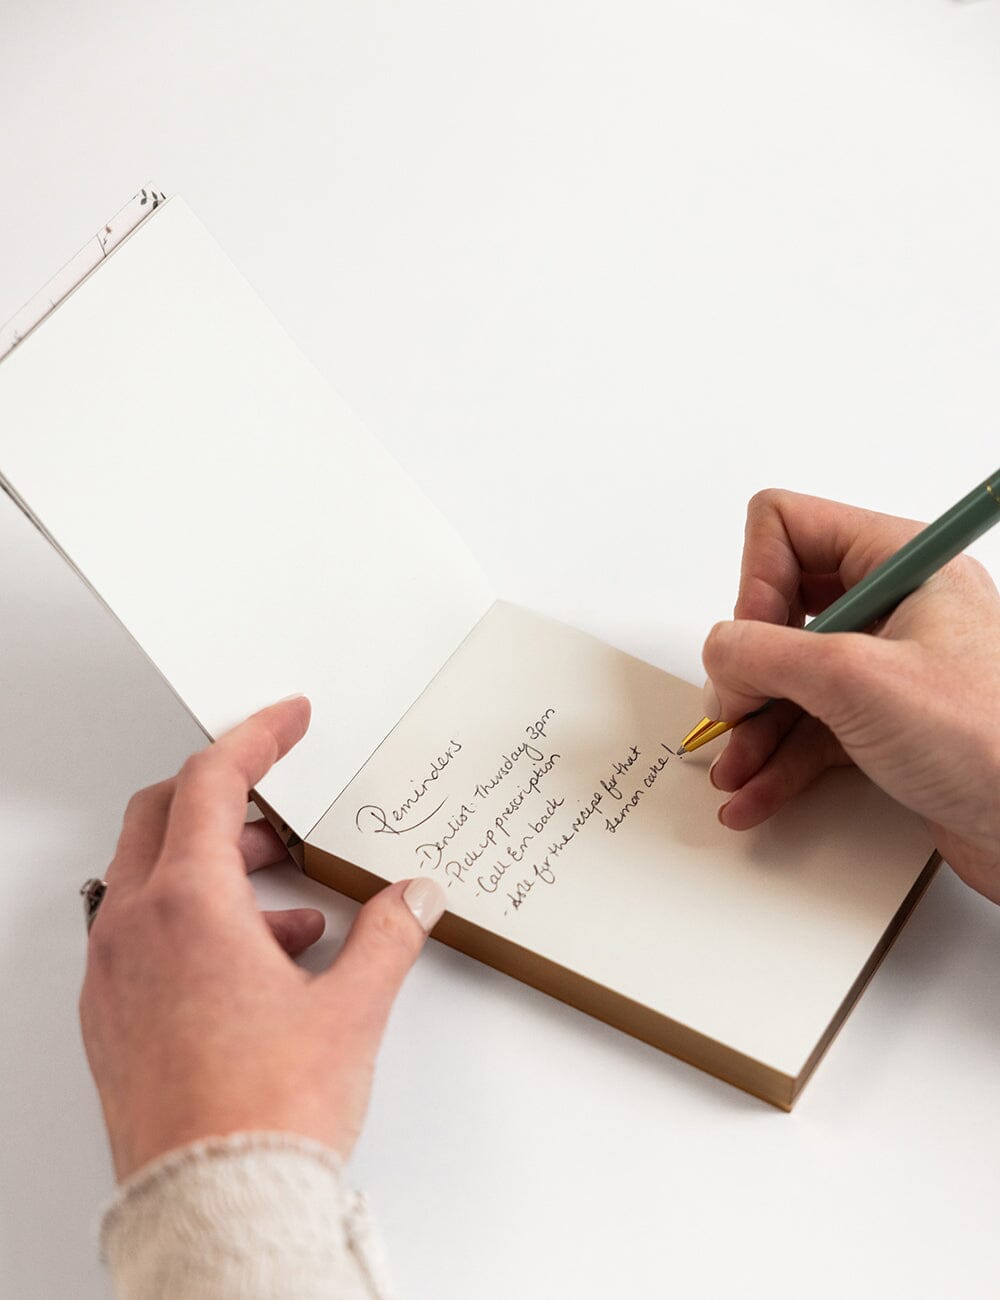 Reminders
- Dentist: Thursday 3pm
- Pick up prescription
- Call Em back
- Ask for the recipe for that
Lemon cake!